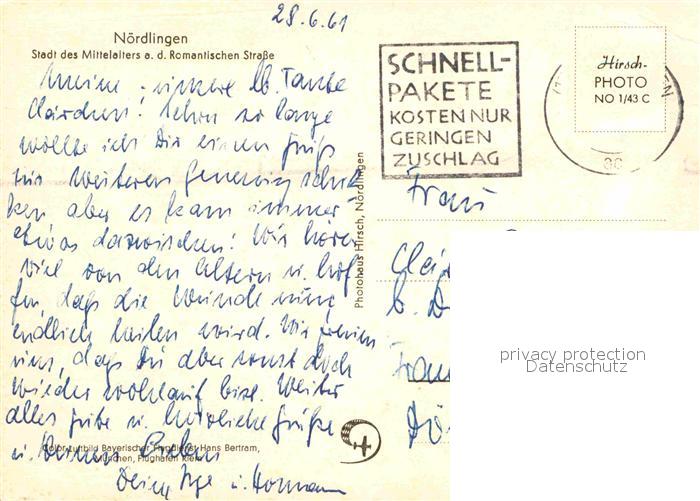 28.6.61
Nördlingen
Stadt des Mittelalters a. d. Romantischen Straße
Meine lb. Tante
Clärchen! Schon so lange
wollte ich Dir einen Gruß
zur weiteren Genesung schik
ken aber es kam immer
etwas dazwischen! Wir hören
viel von den Eltern u. hof
fen, daß die Wunde nun
endlich heilen wird. Wir freuen
uns, daß Du aber sonst doch
wieder wohlauf bist. Weiter
alles Gute u. herzliche Grüße
u.
Deine Inge u. Hermann
Color-Luftbild Bayerischer Flugdienst Hans Bertram,
München, Flughafen Riem
Photohaus Hirsch, Nördlingen
SCHNELL-
PAKETE
KOSTEN NUR
GERINGEN
ZUSCHLAG
Hirsch-
PHOTO
NO 1/43 C
Frau
privacy protection
Datenschutz